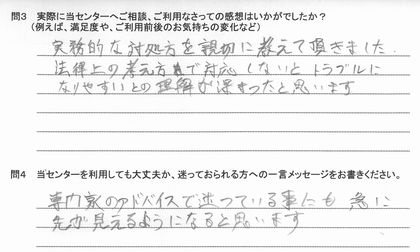 問3　実際に当センターへご相談、ご利用なさっての感想はいかがでしたか？
（例えば、満足度や、ご利用前後のお気持ちの変化など）
実務的な対処方を親切に教えて頂きました．
法律上の考え方で対応しないとトラブルに
なりやすいとの理解が深まったと思います
問4　当センターを利用しても大丈夫か、迷っておられる方への一言メッセージをお書きください。
専門家のアドバイスで迷っている事にも 急に
先が見えるようになると思います